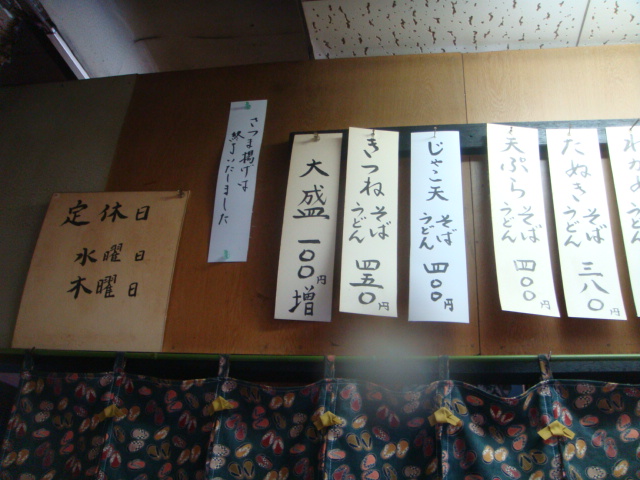 わかめ
うどん
たぬき
そば
うどん
三八〇円
天ぷら
そば
うどん
四〇〇円
じゃこ天
そば
うどん
四〇〇円
きつね
そば
うどん
四五〇円
大盛
一〇〇円
増
さつま揚げは
終了いたしました
定休日
水曜日
木曜日